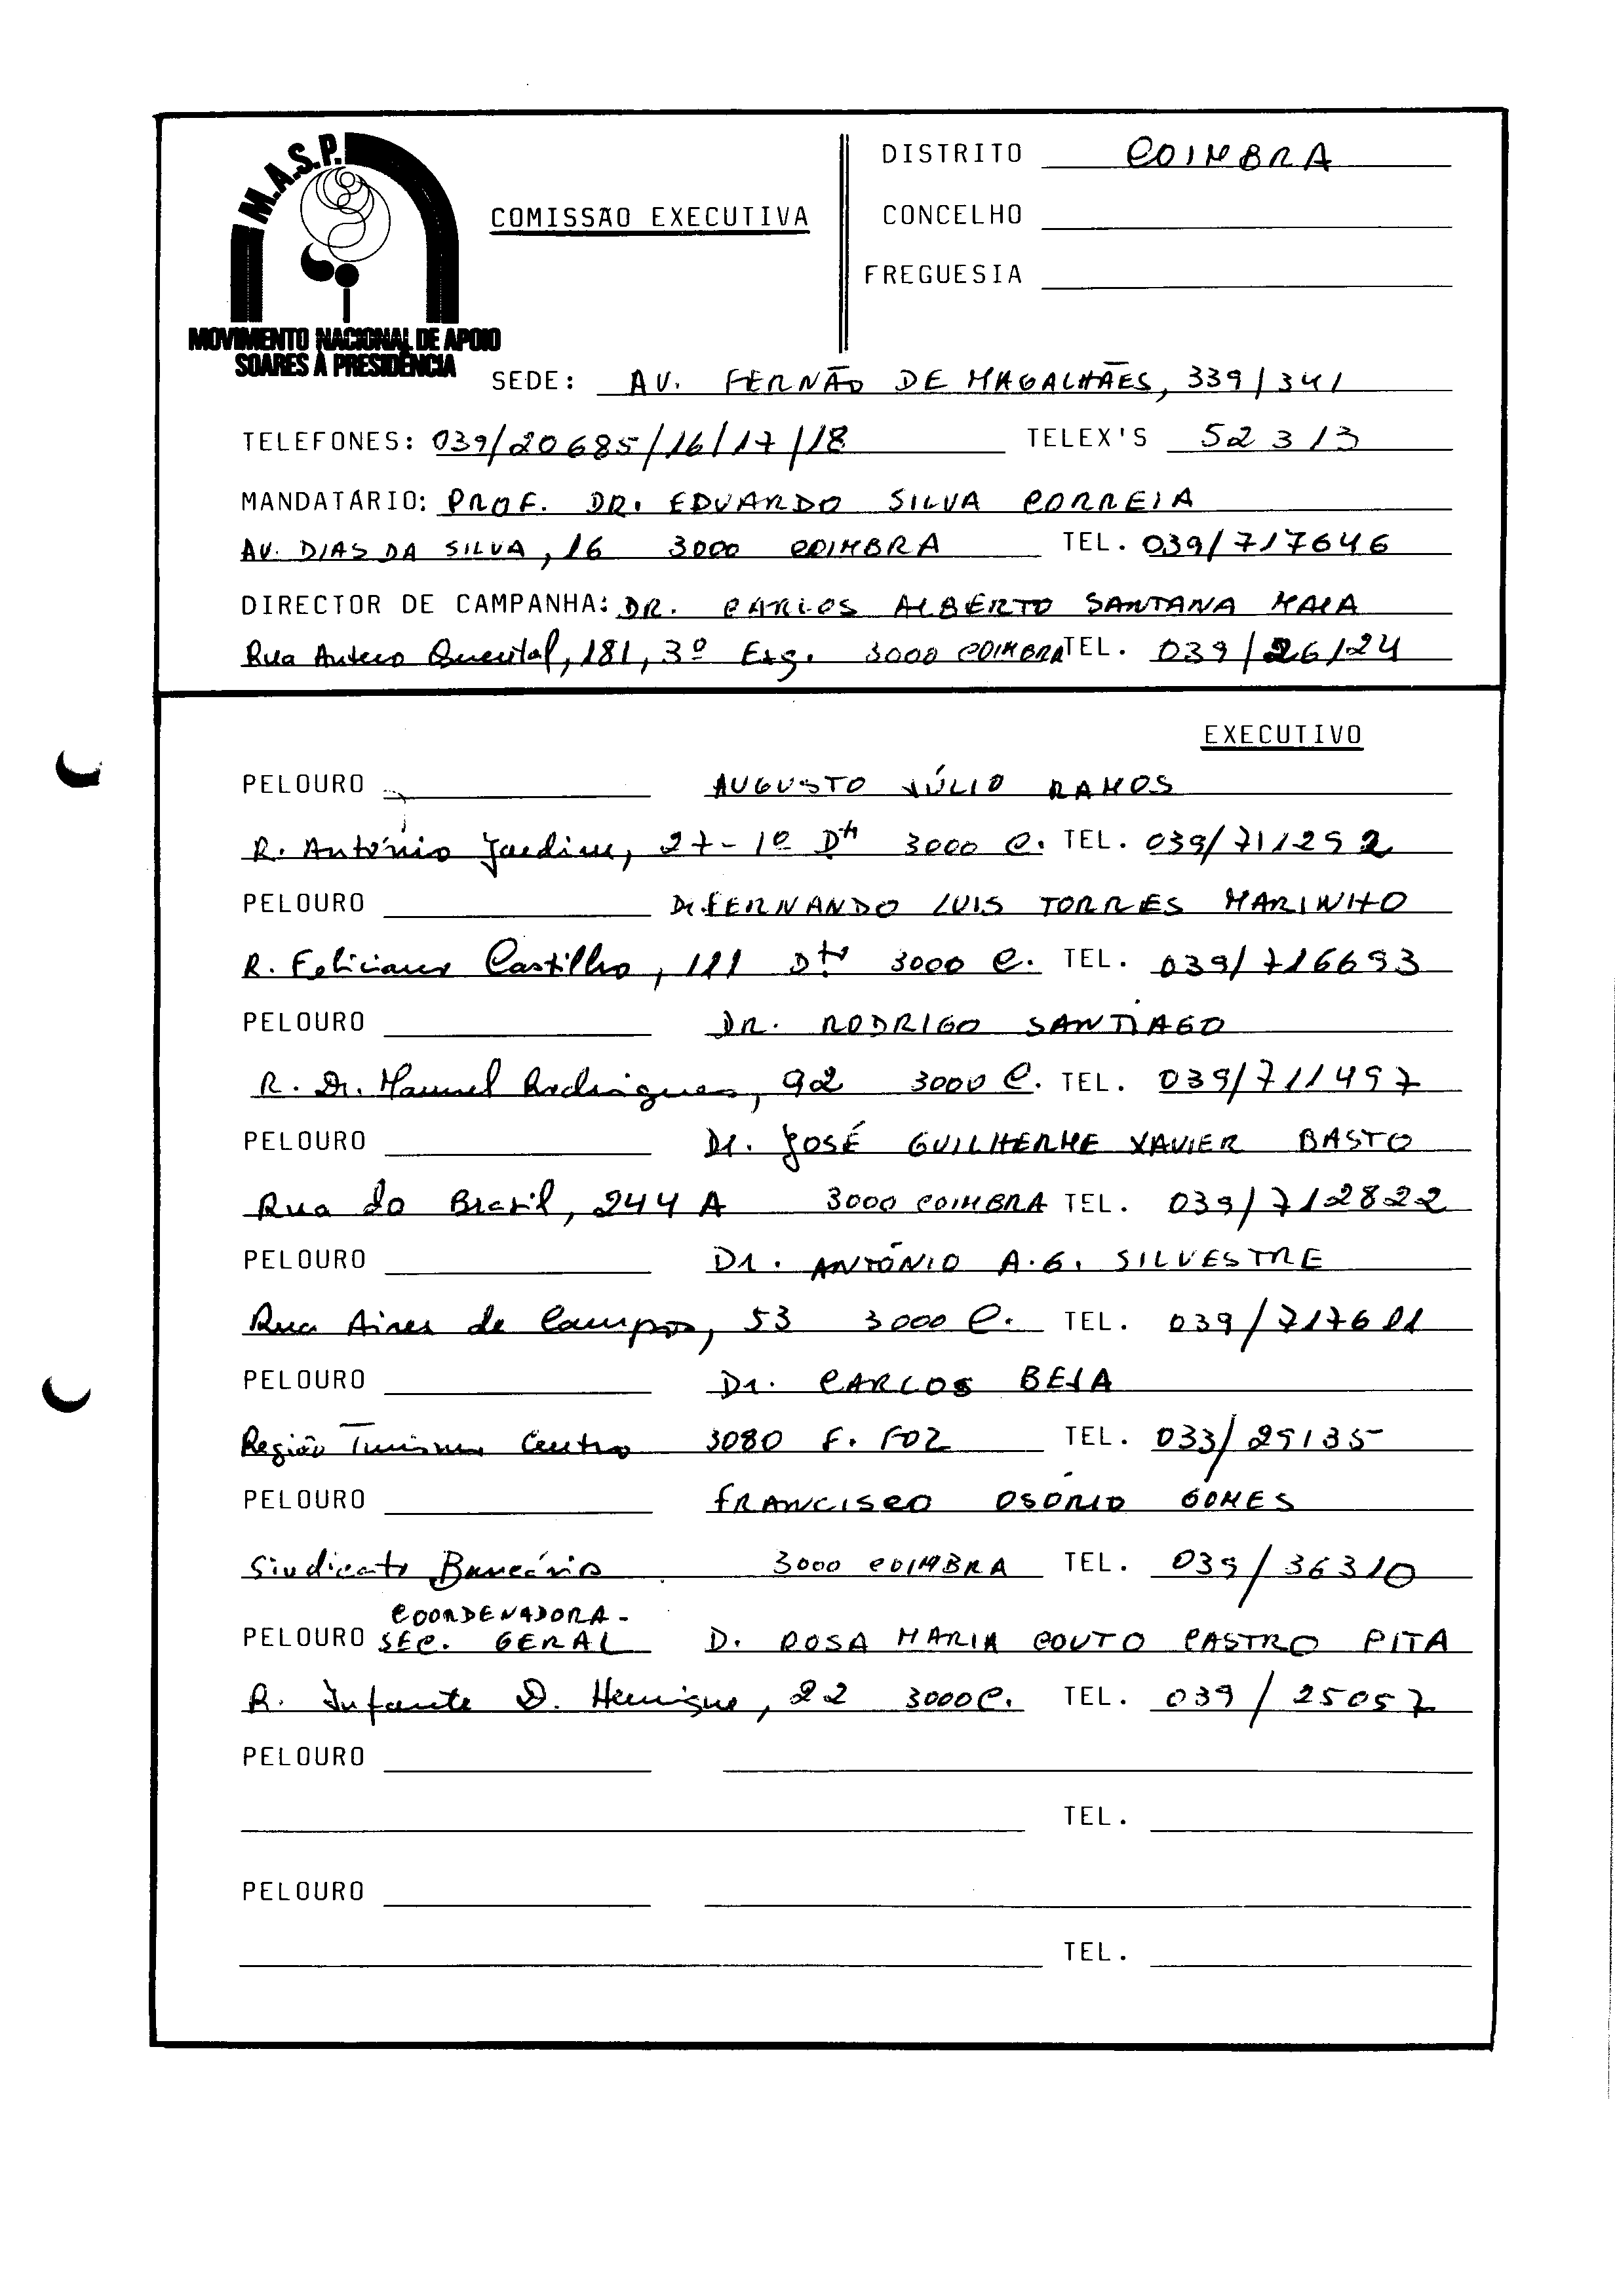 M.A.S.P.
MOVIMENTO NACIONAL DE APOIO
SOARES À PRESIDÊNCIA
COMISSÃO EXECUTIVA
DISTRITO COIMBRA
CONCELHO
FREGUESIA
SEDE: AV. FERNÃO DE MAGALHÃES, 339/341
TELEFONES: 039/20685/16/17/18 TELEX'S 52313
MANDATÁRIO: PROF. DR. EDUARDO SILVA CORREIA
AV. DIAS DA SILVA, 16 3000 COIMBRA TEL. 039/717646
DIRECTOR DE CAMPANHA: DR. CARLOS ALBERTO SANTANA MAIA
Rua Antero Quental, 181, 3º Esq. 3000 COIMBRA TEL. 039/26124
EXECUTIVO
PELOURO AUGUSTO JÚLIO RAMOS
R. António Jardim, 27-1º Dtº 3000 C. TEL. 039/711292
PELOURO Dr. FERNANDO LUIS TORRES MARINHO
R. Feliciano Castilho, 111 Dtº 3000 C. TEL. 039/716693
PELOURO DR. RODRIGO SANTIAGO
R. Dr. Manuel Rodrigues, 92 3000 C. TEL. 039/711497
PELOURO Dr. JOSÉ GUILHERME XAVIER BASTO
Rua do Brasil, 244 A 3000 COIMBRA TEL. 039/712822
PELOURO Dr. ANTÓNIO A.G. SILVESTRE
Rua Aires de Campos, 53 3000 C. TEL. 039/717611
PELOURO Dr. CARLOS BEJA
Região Turismo Centro 3080 F. FOZ TEL. 033/29135
PELOURO FRANCISCO OSÓRIO GOMES
Sindicato Bancário 3000 COIMBRA TEL. 039/36310
PELOURO COORDENADORA - SEC. GERAL D. ROSA MARIA COUTO CASTRO PITA
R. Infante D. Henrique, 22 3000 C. TEL. 039/25057
PELOURO
TEL.
PELOURO
TEL.